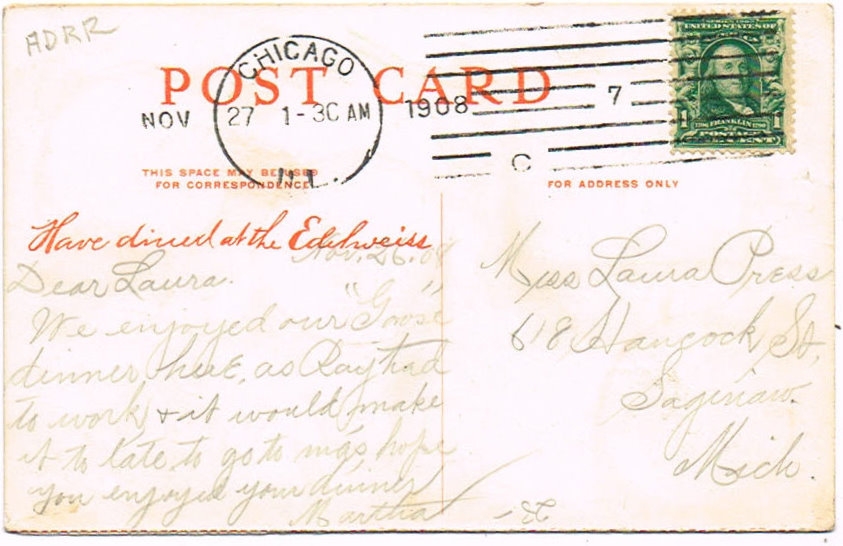 ADRR
POST CARD
CHICAGO
NOV 27 1-30 AM 1908
ILL.
7
C
SERIES 1902
UNITED STATES OF
1 FRANKLIN 1
POSTAGE
CENT
THIS SPACE MAY BE USED
FOR CORRESPONDENCE
FOR ADDRESS ONLY
Have dined at the Edelweiss
Nov. 26. 08
Dear Laura.
We enjoyed our "Goose"
dinner here, as Ray had
to work & it would make
it to late to go to mas hope
you enjoyed your dinner
Martha
Miss Laura Press
618 Hancock St,
Saginaw.
Mich.